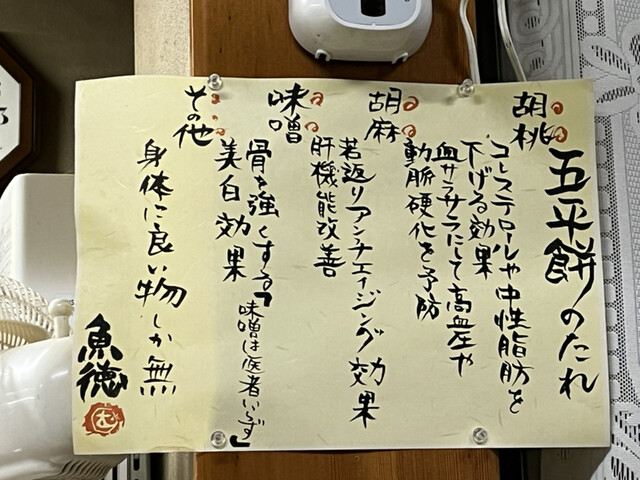 五平餅のたれ
胡桃
コレステロールや中性脂肪を
下げる効果
血サラサラにして高血圧や
動脈硬化を予防
胡麻
若返りアンチエイジング効果
肝機能改善
味噌
骨を強くする「味噌は医者いらず」
美白効果
その他
身体に良い物しか無
魚徳